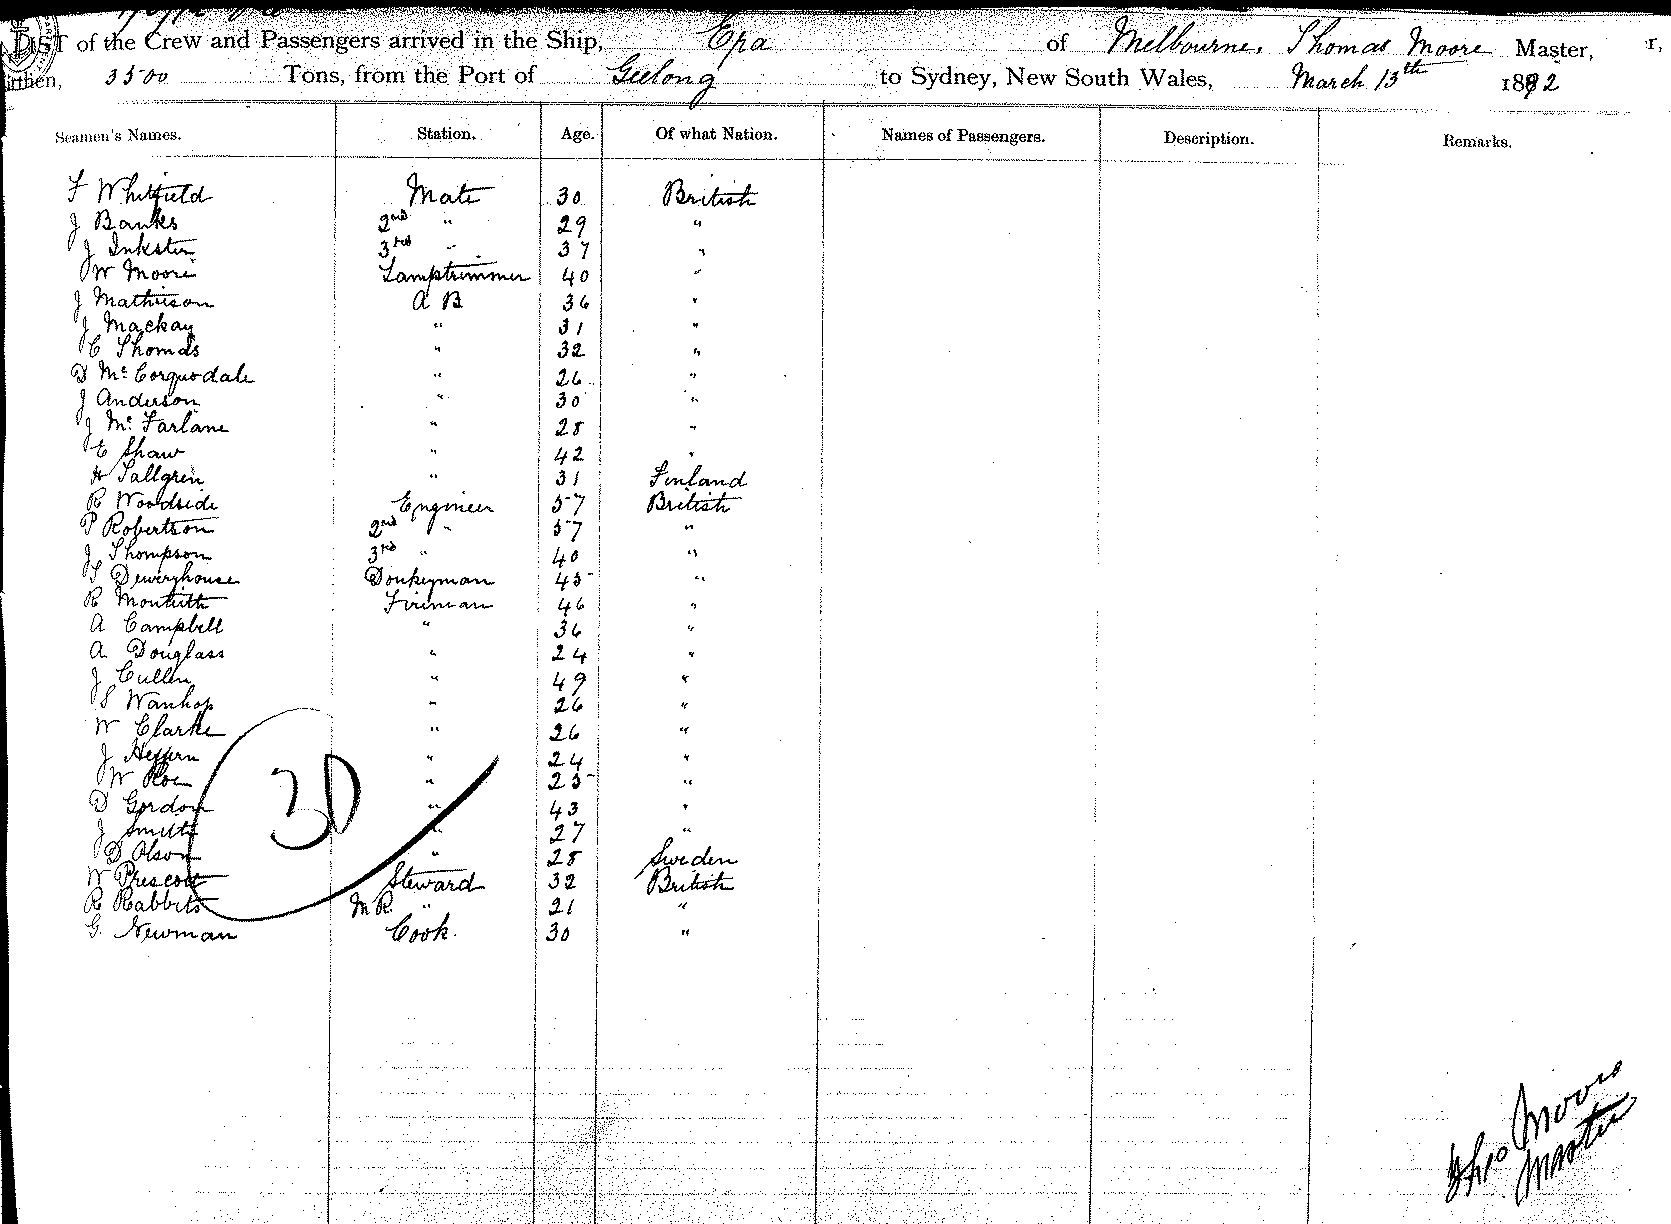 LIST of the Crew and Passengers arrived in the Ship, Era of Melbourne, Thomas Moore Master,
Burthen, 3500 Tons, from the Port of Geelong to Sydney, New South Wales, March 13th 1892
Seamen's Names. Station. Age. Of what Nation. Names of Passengers. Description. Remarks.
F Whitfield Mate 30 British
J Banks 2nd " 29 "
J Inkster 3rd " 37 "
W Moore Lamptrimmer 40 "
J Mathieson A B 36 "
J Mackay " 31 "
C Thomas " 32 "
D McCorquodale " 26 "
J Anderson " 30 "
J McFarlane " 28 "
E Shaw " 42 "
H Sallgren " 31 Finland
R Woodside Engineer 57 British
P Robertson 2nd " 57 "
J Thompson 3rd " 40 "
S Deweryhouse Donkeyman 45 "
R Montieth Fireman 46 "
A Campbell " 36 "
A Douglass " 24 "
J Cullen " 49 "
S Wanhop " 26 "
W Clarke " 26 "
J Heffern " 24 "
W Roe " 25 "
D Gordon " 43 "
J Smith " 27 "
D Olson " 28 Sweden
W Prescott Steward 32 British
R Rabbits M R " 21 "
G Newman Cook 30 "
30
Thos Moore
Master